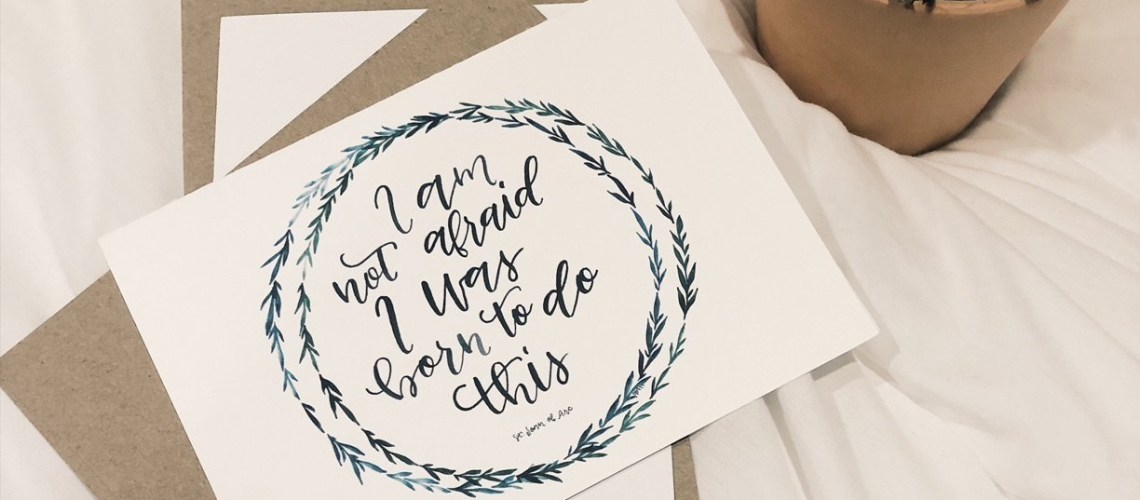 I am
not afraid
I was
born to do
this
St Joan of Arc